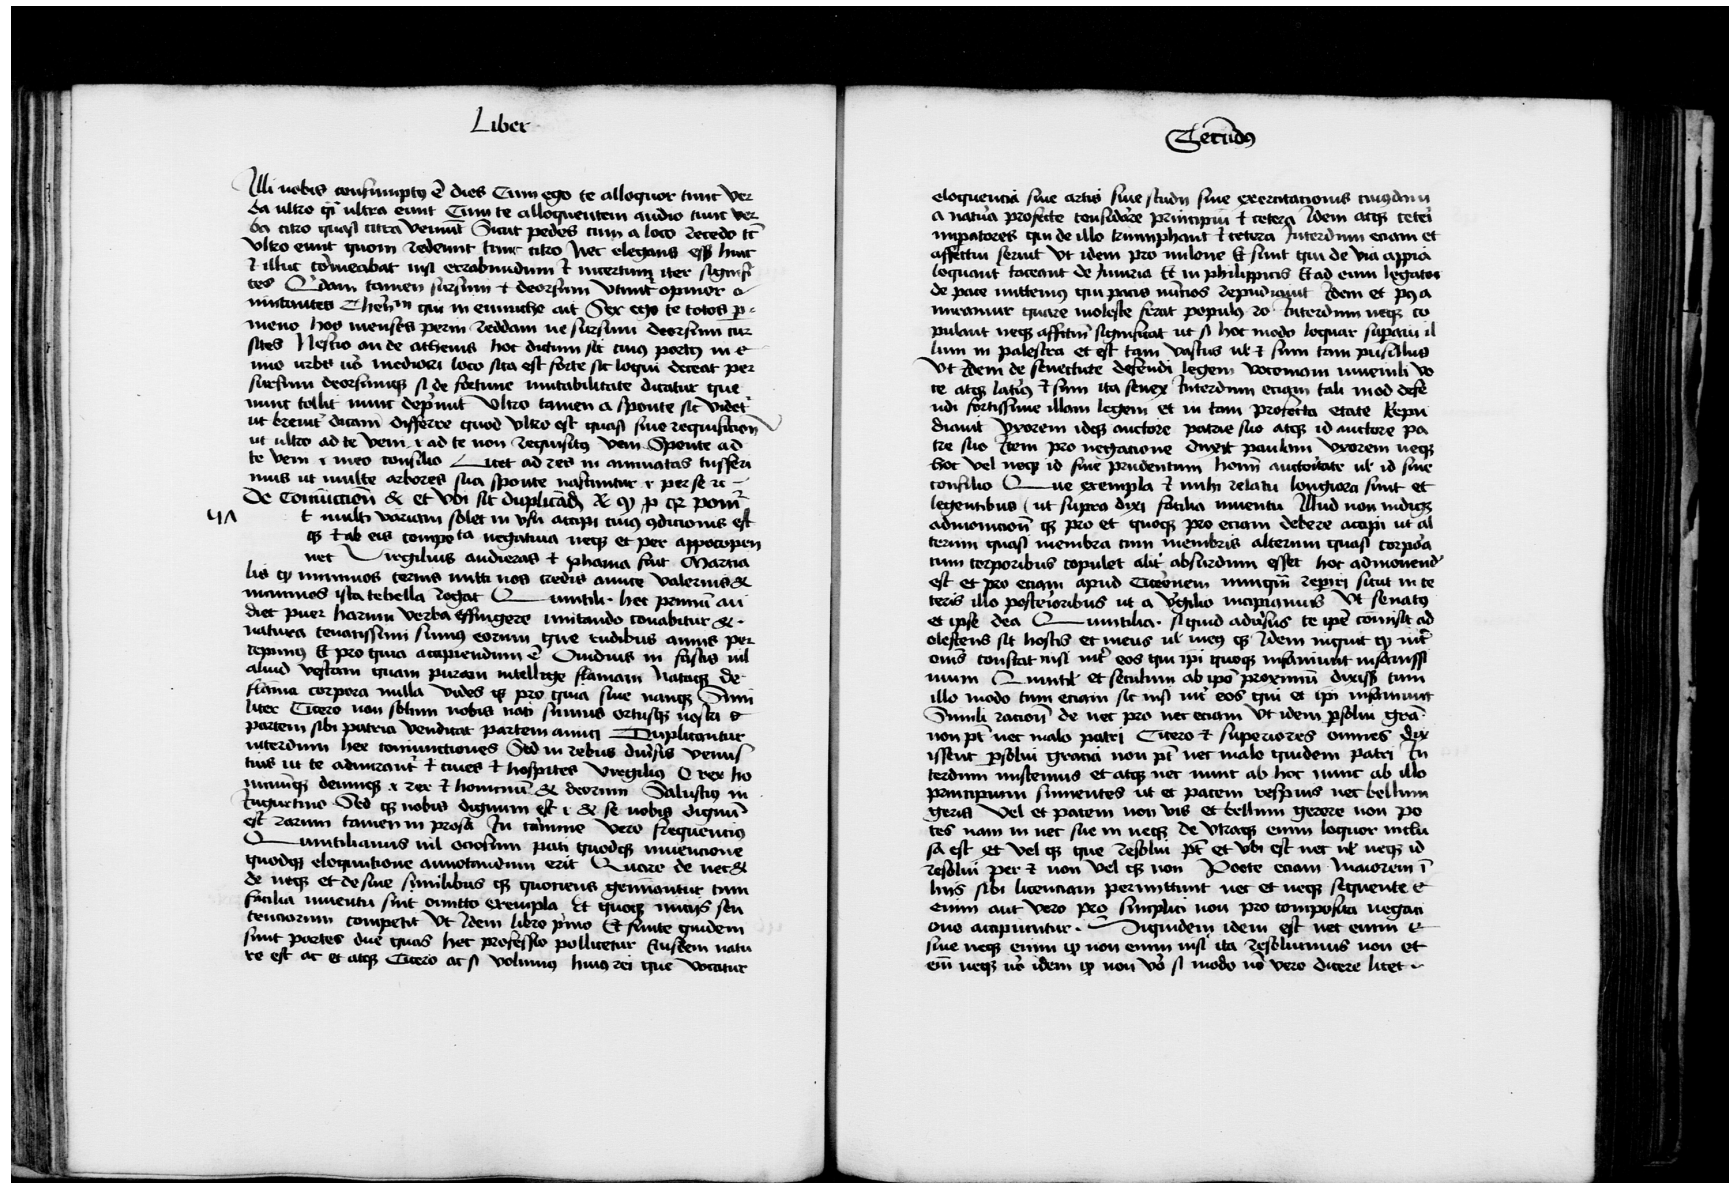 Liber
Illi nobis consumptꝯ ē dies Cum ego te alloquor tunc ver
ba ultro qͣi ultra eunt Cum te alloquentem audio tunc ver
ba citro quasi citra veniūt Sicut pedes cum a loco recedo tc̄
Vltro eunt quom redeunt tunc citro Nec elegans esß hunc
⁊ illuc cōmeabat nisi errabundum ⁊ incertum iter signifi
tes Qͥdam tamen sursum ⁊ deorsum vtunt᷑ opinor
mitantes qui in eunucho ait Sex ego te totos
meno hos menses perm reddam ne sursum deorsum cur
sites Nescio an de athenis hoc dictum sit cuiꝯ portꝯ in
mo urbs vͦo mediori loco sita est forte sic loqui deceat per
sursum deorsumqꝫ si de fortune mutabilitate dicatur que
nunc tollit nunc dep̄mit Vltro tamen a sponte sic videt᷑
ut breuit᷑ dicam differre quod vltro est quasi sine requisicion
ut ultro ad te veni .i. ad te non requisitꝯ veni Sponte ad
te veni .i. meo consilio Licet ad res in animatas tr̄nsferi
mus ut multe arbores sua sponte nascuntur .i. per se
De Coniūccion & et vbi sit duplicādꝫ
t multi variam solet in vsu accipi cuiꝯ ꝯdicionis est
qꝫ ⁊ ab eis compoᵗᵃ negatiua neqꝫ et per appocopen
nec Virgilius audieras ⁊ phama fuit Marcia
lis qꝫ nummos ternis mitti nos credis amice valerius &
nummos ista tebella rogat Quintili. hec primū au
diet puer harum verba effingere imitando conabitur &.
natura tenacissimi sumꝯ eorum que rudibus annis per
cepimꝯ Et pro quia accipiendum ē Ouidius in fastis nil
aliud vestam quam puram intellige flāmam Natasqꝫ de
flāma corpora nulla vides qꝫ pro quia siue nanqꝫ Simi
liter Cicero non solum nobis nati sumus ortusqꝫ nostri
partem sibi patria vendicat partem amici Duplicantur
interdum hee coniunctiones Sed in rebus diu᷑sis venus
tius ut te admirant᷑ ⁊ ciues ⁊ hospites Virgiliꝯ O rex ho
minūqꝫ deumqꝫ .i. rex ⁊ hominū & deorum Salustiꝯ in
Iugurtino Sed qꝫ nobis dignum est .i. & se nobis dignū
est rarum tamen in prosa In carmine vero frequencius
Quintilianus nil ociosum pati quodqꝫ inuencione
quodqꝫ eloquutione annotandum erit Quare de nec &
de neqꝫ et de siue similibus qꝫ quociens geminantur cum
facilia inuentu sint omitto exempla Et quoqꝫ initijs sen
tenciarum competit Vt Idem libro p̄mo Et sunte quidem
sunt partes due quas hec professio pollicetur Eiusdem natu
re est ac et atqꝫ Cicero ac si volumus huiꝯ rei que vocatur
Secūdꝯ
eloquencia siue artis siue studij siue exercitacionis cuiusdam
a natura profecte considerare principiū ⁊ cetera Idem atqꝫ ceteri
imperatores qui de illo triumphant ⁊ cetera Interdum eciam et
affectui seruit Vt idem pro milone Et sunt qui de via appia
loquant taceant de Iniuria Et in philippicis Et ad eum legatos
de pace mittemus qui pacis nūcios repudiauit Idem et pꝯ a
miramur quare moleste ferat populꝯ ro Interdum neqꝫ co
pulant neqꝫ affectū significat ut si hoc modo loquar superaui il
lum in palestra et est tam vastus ul ⁊ sum tam pusillus
Vt Idem de senectute defendi legem voconiam iuuenili vo
ce atqꝫ laterꝯ ⁊ sum ita senex Interdum eciam tali mod defe
ndi fortissime illam legem et in tam profecta etate Repu
diauit vxorem idqꝫ auctore patre suo atqꝫ id auctore pa
tre suo Item pro negacione duxit paulam vxorem neqꝫ
hoc vel neqꝫ id sine prudentum homī auctoritate ul id sine
consilio Que exempla ⁊ mihi relatu longiora sunt et
legentibus ( ut supra dixi facilia inuentu Illud non indiget
admonicion qꝫ pro et quoqꝫ pro eciam debere accipi ut al
terum quasi membra cum membris alterum quasi corpora
cum corporibus copulet alit᷑ absurdum esset hoc admonend
est et pro eciam apud Ciceronem nunquā reperi sicut in ce
teris illo posterioribus ut a v᷑gilio incipiamus Vt senatꝯ
et ipse dea Quintilia. siquid adu᷑sus te ip̄e cōmisit ad
olescens sit hostis et meus ul meꝯ qꝫ Idem inquit qꝫ int᷑
om̄s constat nisi int᷑ eos qui ip̄i quoqꝫ insaniunt insanissi
mum Quintil et seculum ab ip̄o proximū dixisß cum
illo modo tum eciam sic nisi int᷑ eos qui et ip̄i insaniunt
Simili racion de nec pro nec eciam Vt idem p̄solui grā.
non pt̄ nec malo patri Cicero ⁊ superiores omnes dix
issent p̄solui gracia non pt̄ nec malo quidem patri In
terdum miscemus et atqꝫ nec nunc ab hoc nunc ab illo
principium sumentes ut et pacem respuis nec bellum
geris Vel et pacem non vis et bellum gerere non po
tes nam in nec sue in neqꝫ de vtraqꝫ enim loquor inclu
sa est et vel qꝫ que resolui pt̄ et vbi est nec ul neqꝫ id
resolui per ⁊ non vel qꝫ non Poete eciam maiorem ī
hijs sibi licenciam permittunt nec et neqꝫ sequente
enim aut vero pro simplici non pro composita negaci
one accipiuntur. Siquidem idem est nec enim
siue neqꝫ enim qꝫ non enim nisi ita resoluimus non et
enī neqꝫ vͦo idem qꝫ non vͦo si modo nō vero dicere licet